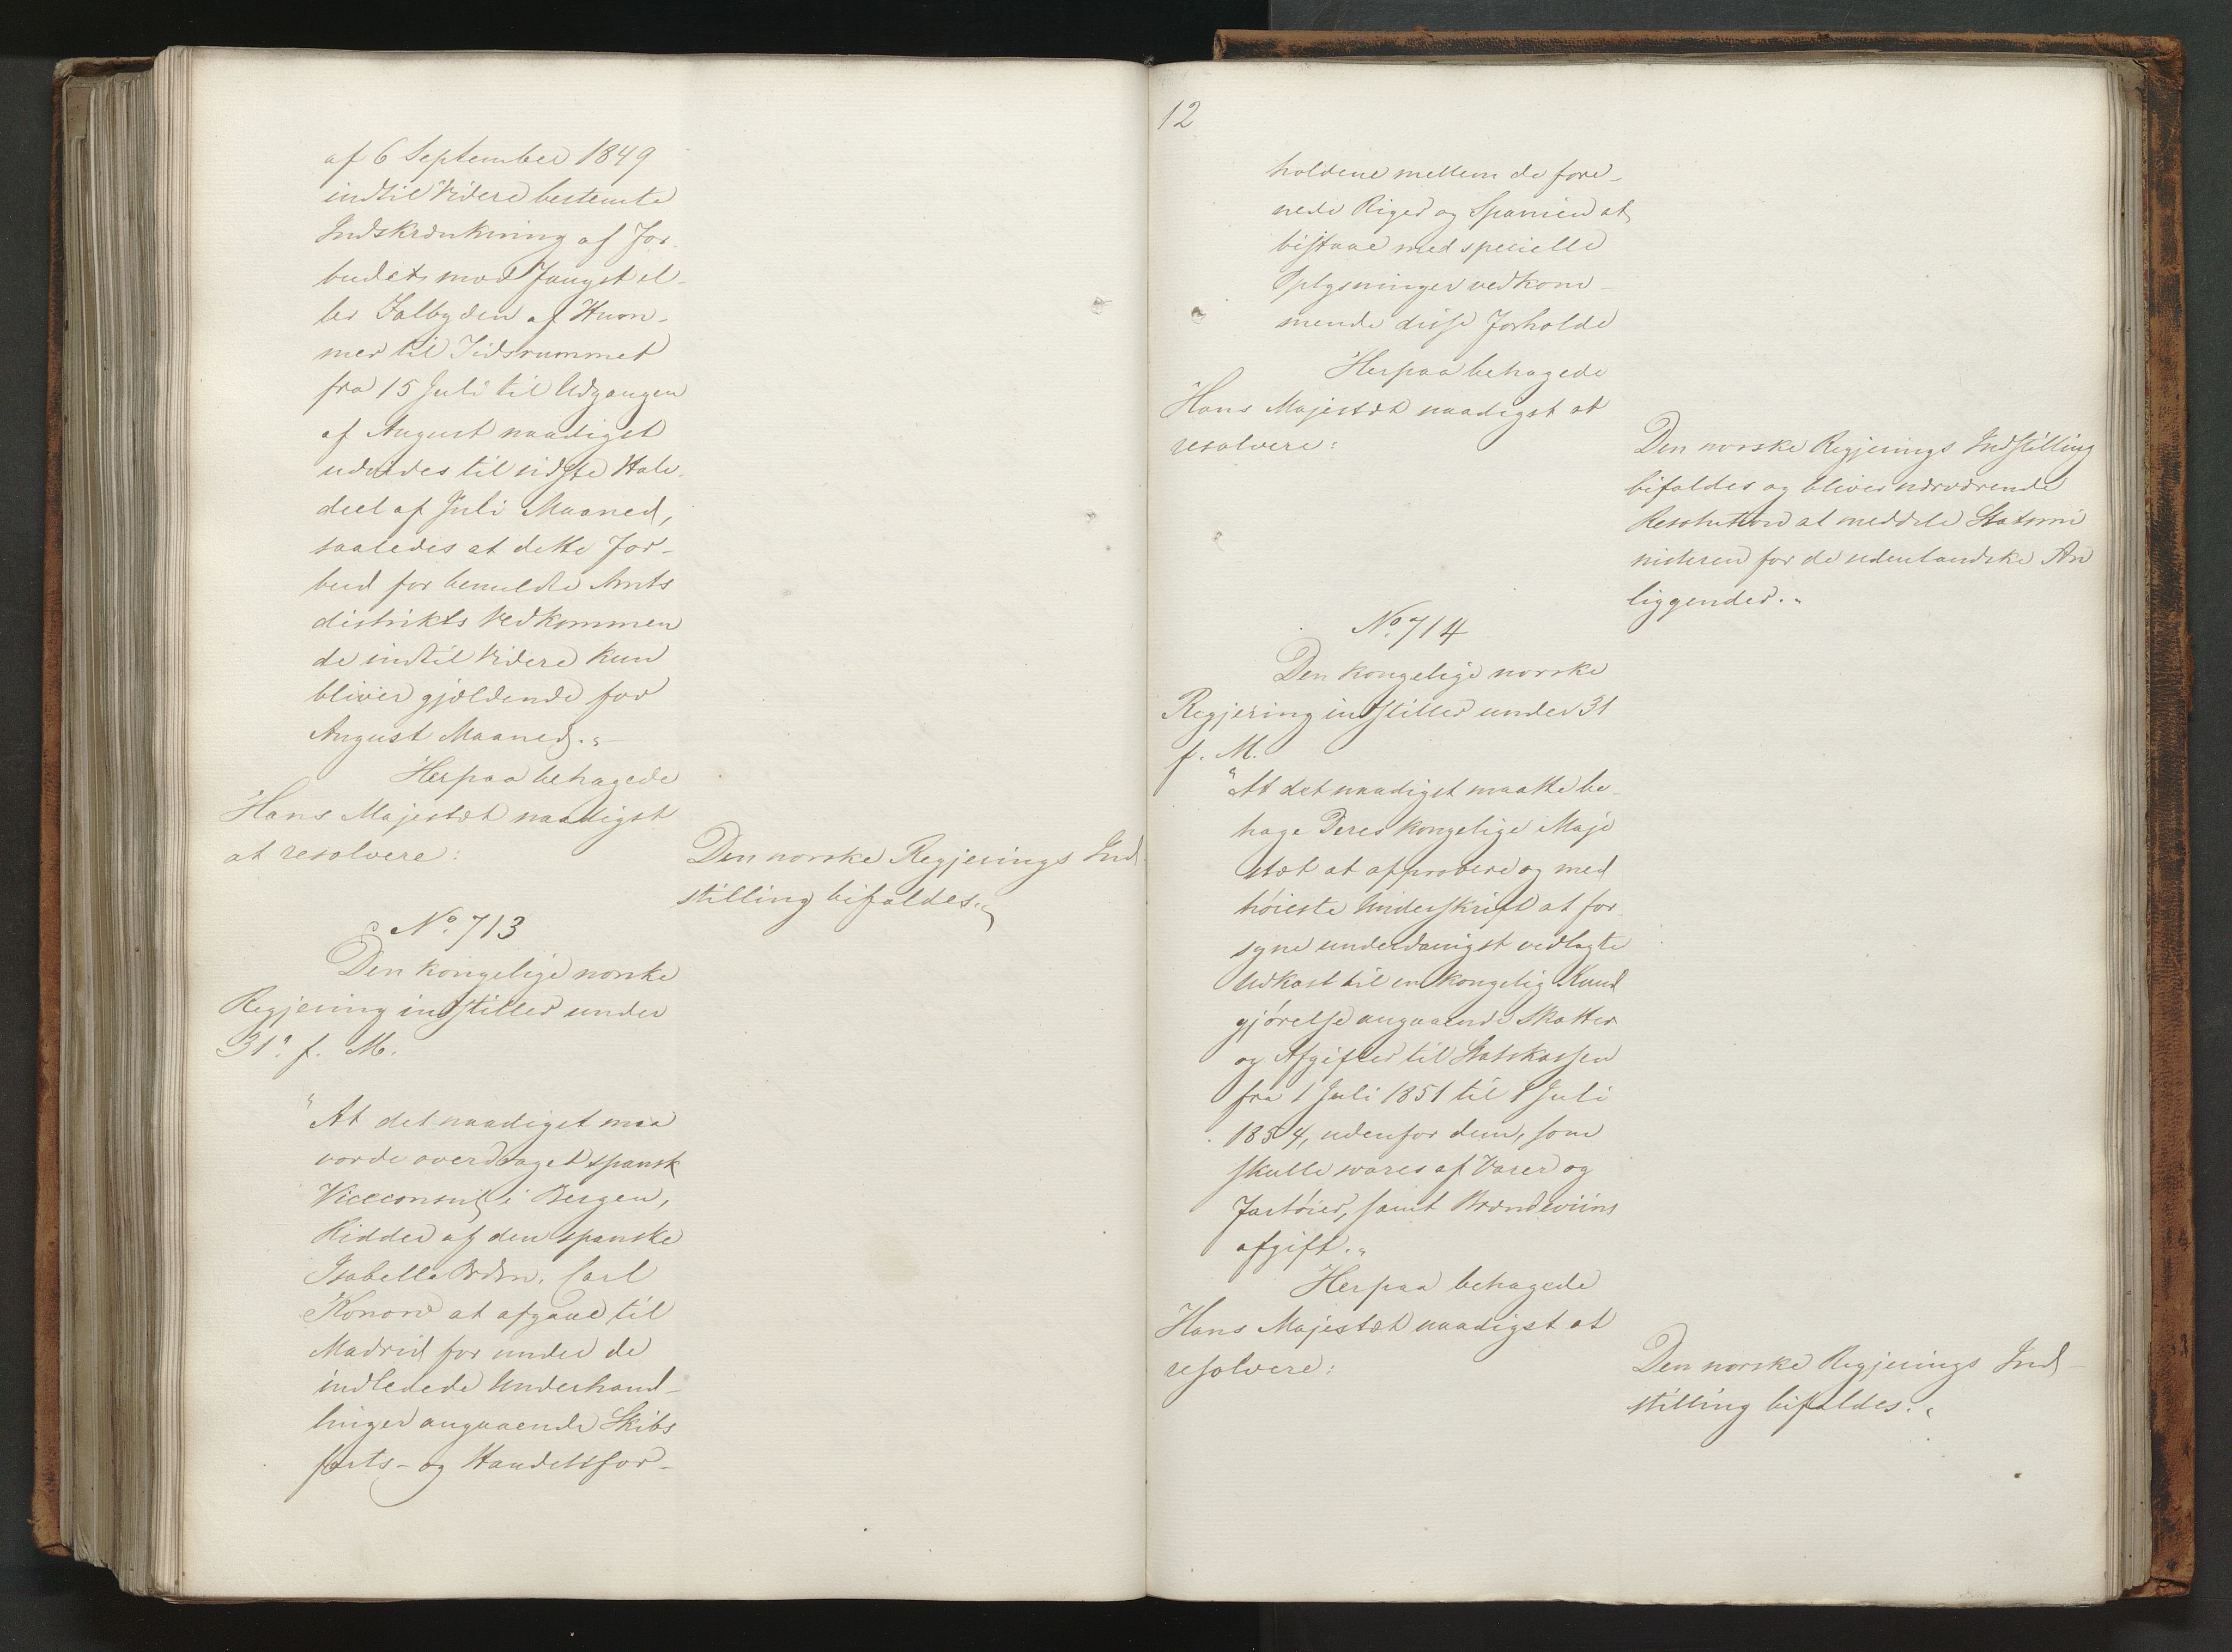 af 6 September 1849
indtil Videre bestemte
Indskrænkning af For-
budet mod Fangst el-
ler Falbyden af Hum-
mer til Tidsrummet
fra 15 Juli til Udgangen
af August naadigst
udvides til sidste Halv-
deel af Juli Maaned,
saaledes at dette For-
bud for bemeldte Amts
distrikts Vedkommen
de indtil Videre kun
bliver gjældende for
August Maaned."
Herpaa behagede
Hans Majestæt naadigst
at resolvere:
Den norske Regjerings Ind-
stilling bifaldes."
No 713
Den kongelige norske
Regjering indstiller under
31e f. M.
"At det naadigst maa
vorde overdraget spansk
Viceconsul i Bergen,
Ridder af den spanske
Isabella Orden, Carl
Konow at afgaae til
Madrid for under de
indledede Underhand-
linger angaaende Skibs
farts- og Handelsfor-
12
holdene mellem de fore-
nede Riger og Spanien at
bistaae med specielle
Oplysninger vedkom-
mende disse Forholde
Herpaa behagede
Hans Majestæt naadigst at
resolvere:
Den norske Regjerings Indstilling
bifaldes og bliver nærværende
Resolution at meddele Statsmi
nisteren for de udenlandske An
liggender."
No 714
Den kongelige norske
Regjering indstiller under 31
f. M.
"At det naadigst maatte be-
hage Deres Kongelige Maje
stæt at approbere og med
höieste Underskrift at for-
syne underdanigst vedlagte
Udkast til en kongelig Kund
gjörelse angaaende Skatter
og Afgifter til Statskassen
fra 1 Juli 1851 til 1 Juli
1854, udenfor dem, som
skulle svares af Varer og
Fartöier, samt Brændeviins
afgift."
Herpaa behagede
Hans Majestæt naadigst at
resolvere:
Den norske Regjerings Ind-
stilling bifaldes."